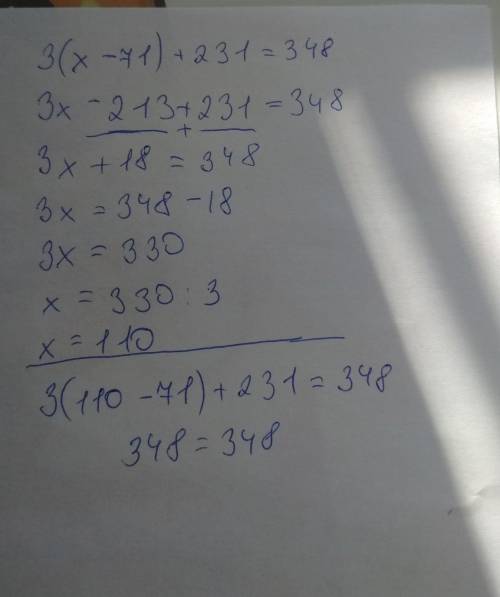 3(x - 71) + 231 = 348
3x - 213 + 231 = 348
+
3x + 18 = 348
3x = 348 - 18
3x = 330
x = 330 : 3
x = 110
3(110 - 71) + 231 = 348
348 = 348